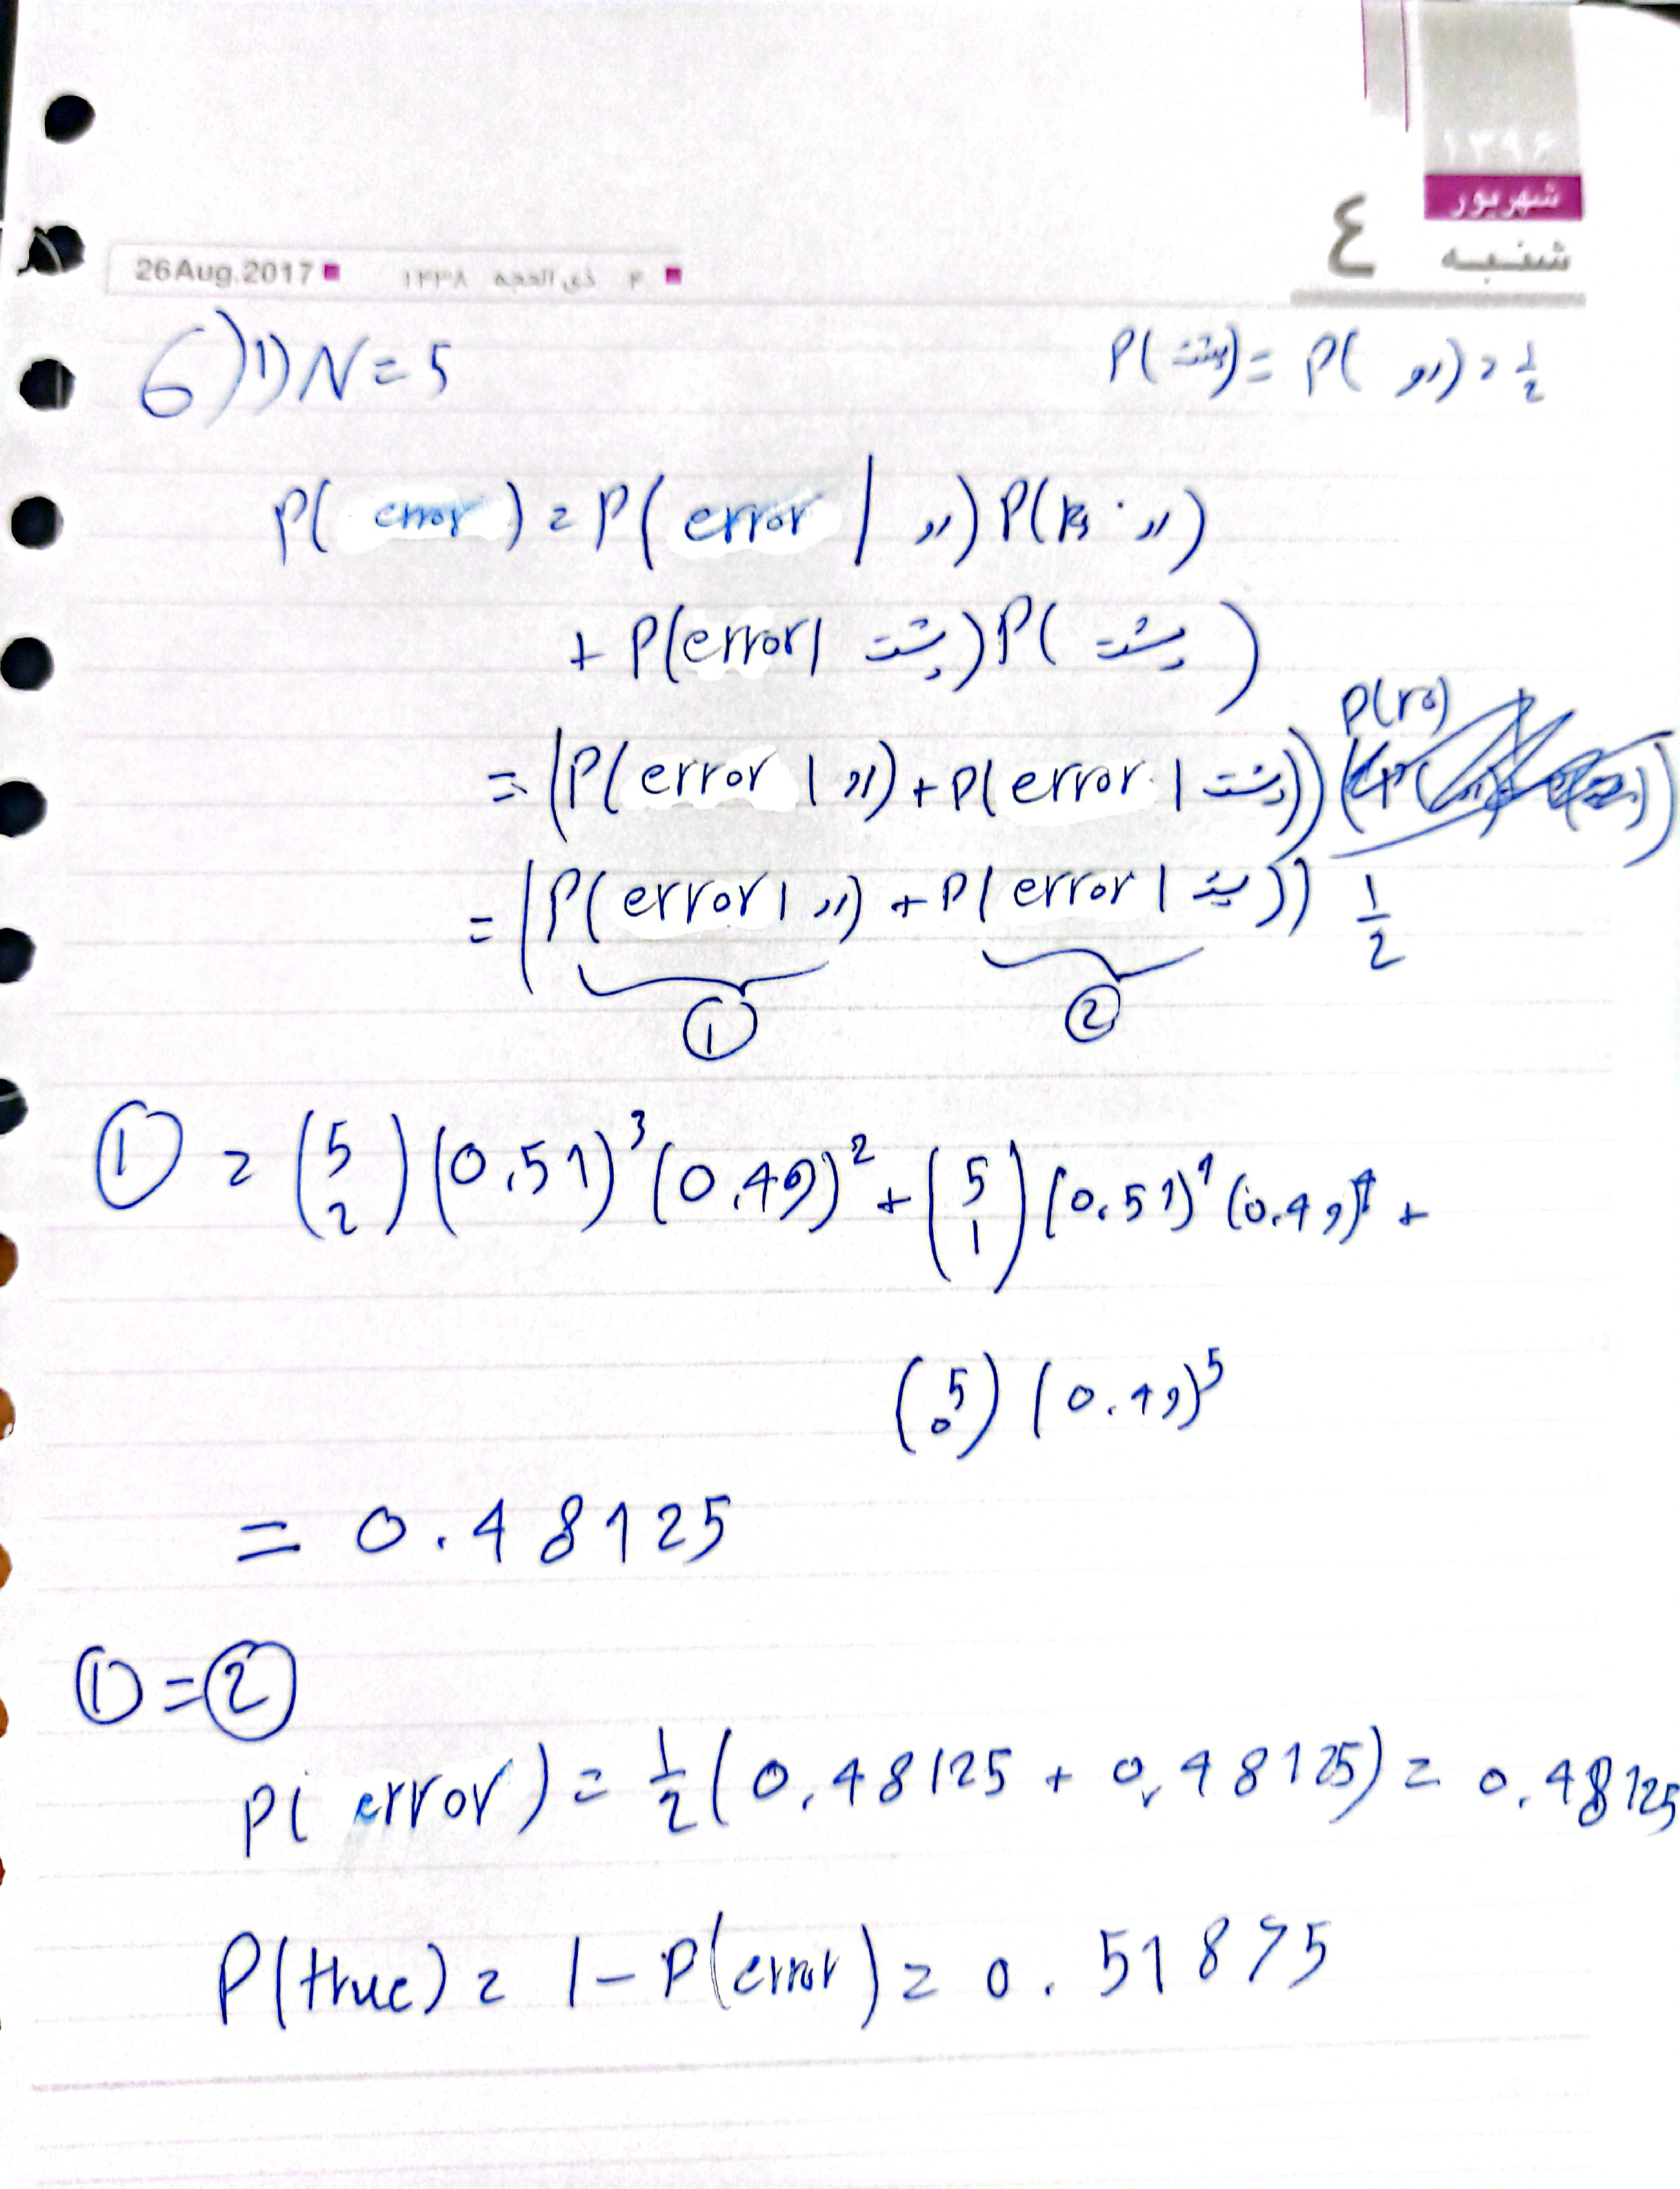 ۱۳۹۶
شهریور
شنبه
٤
26Aug.2017 ۱۴۳۸ ذی الحجه ۴
6) 1) N = 5
P(پشت) = P(رو) = 1/2
P(error) = P(error | رو) P(رو)
+ P(error | پشت) P(پشت)
= (P(error | رو) + P(error | پشت)) P(رو)
= (P(error | رو) + P(error | پشت)) 1/2
① ②
① = (5 2) (0.51)³ (0.49)² + (5 1) (0.51)¹ (0.49)⁴ +
(5 0) (0.49)⁵
= 0.48125
① = ②
P(error) = 1/2 (0.48125 + 0.48125) = 0.48125
P(true) = 1 - P(error) = 0.51875